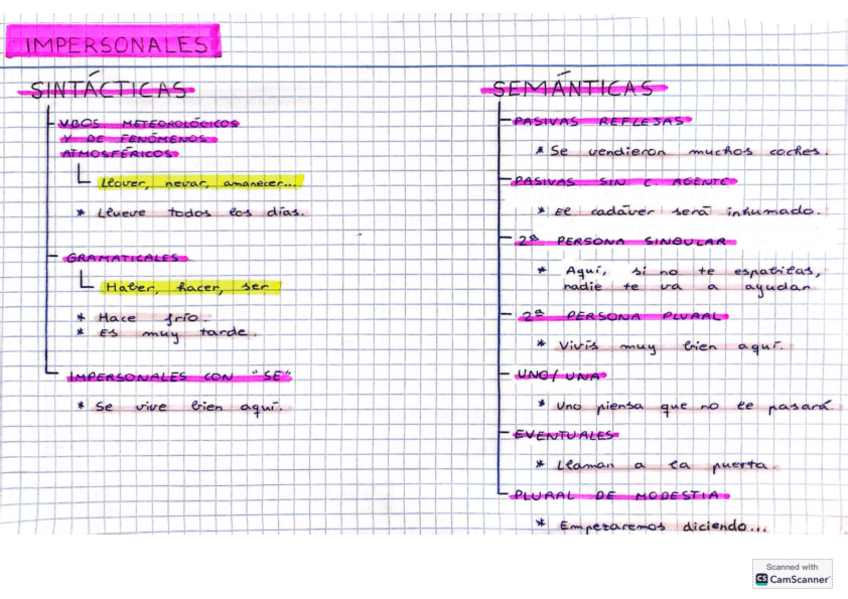 IMPERSONALES
SINTÁCTICAS
VBOS METEOROLÓGICOS
Y DE FENÓMENOS
ATMOSFÉRICOS
Llover, nevar, amanecer...
* Llueve todos los días.
GRAMATICALES
Haber, hacer, ser
* Hace frío.
* Es muy tarde.
IMPERSONALES CON "SE"
* Se vive bien aquí.
SEMÁNTICAS
PASIVAS REFLEJAS
* Se vendieron muchos coches.
PASIVAS SIN C. AGENTE
* El cadáver será inhumado.
2ª PERSONA SINGULAR
* Aquí, si no te espabilas,
nadie te va a ayudar
2ª PERSONA PLURAL
* Vivís muy bien aquí.
UNO/UNA
* Uno piensa que no le pasará.
EVENTUALES
* Llaman a la puerta.
PLURAL DE MODESTIA
* Empezaremos diciendo...
Scanned with
CS CamScanner